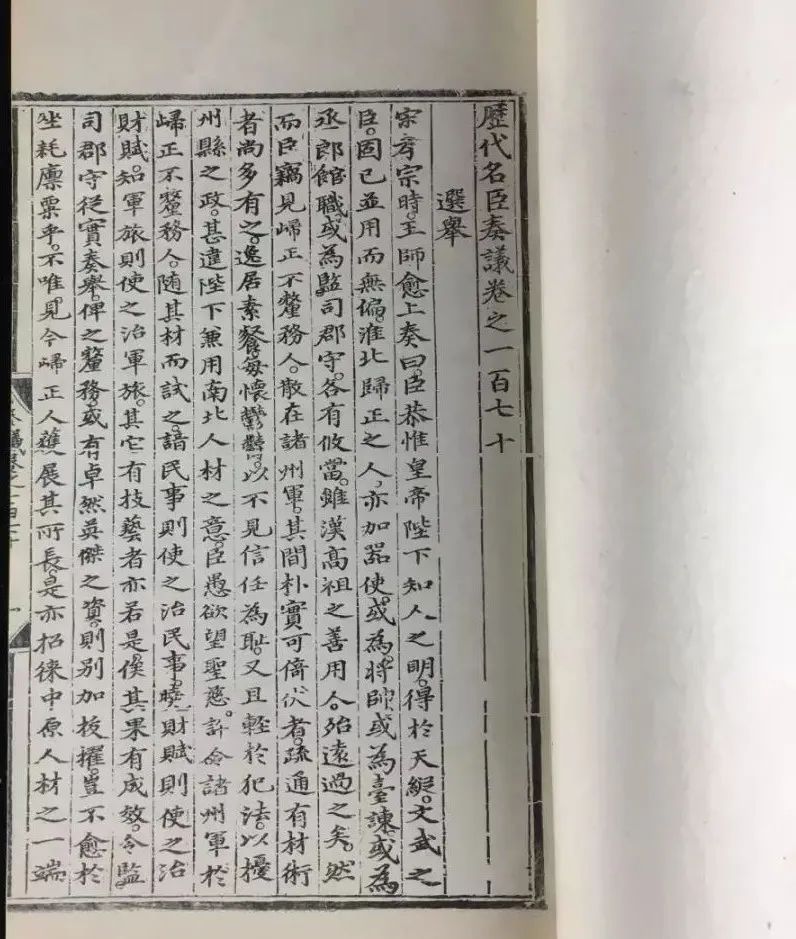 歷代名臣奏議卷之一百七十
選舉
宗孝宗時。王師愈上奏曰。臣恭惟皇帝陛下知人之明。得於天縱。文武之
臣。固已並用而無偏。淮北歸正之人。亦加器使。或為將帥。或為臺諫。或為
丞郎館職。或為監司郡守。各有攸當。雖漢高祖之善用人。殆遠過之矣。然
而臣竊見歸正不釐務人。散在諸州軍。其間朴實可倚仗者。疏通有材術
者。尚多有之。逸居素餐。每懷鬱鬱。以不見信任為恥。又且輕於犯法。以擾
州縣之政。甚違陛下兼用南北人材之意。臣愚欲望聖慈。許令諸州軍於
歸正不釐務人。隨其材而試之。諳民事則使之治民事。曉財賦則使之治
財賦。知軍旅則使之治軍旅。其它有技藝者亦若是。俟其果有成效。令監
司郡守從實奏舉。俾之釐務。或有卓然英傑之資。則別加拔擢。豈不愈於
坐耗廩粟乎。不唯見今歸正人獲展其所長。是亦招徠中原人材之一端
奏議卷之一百七十
一